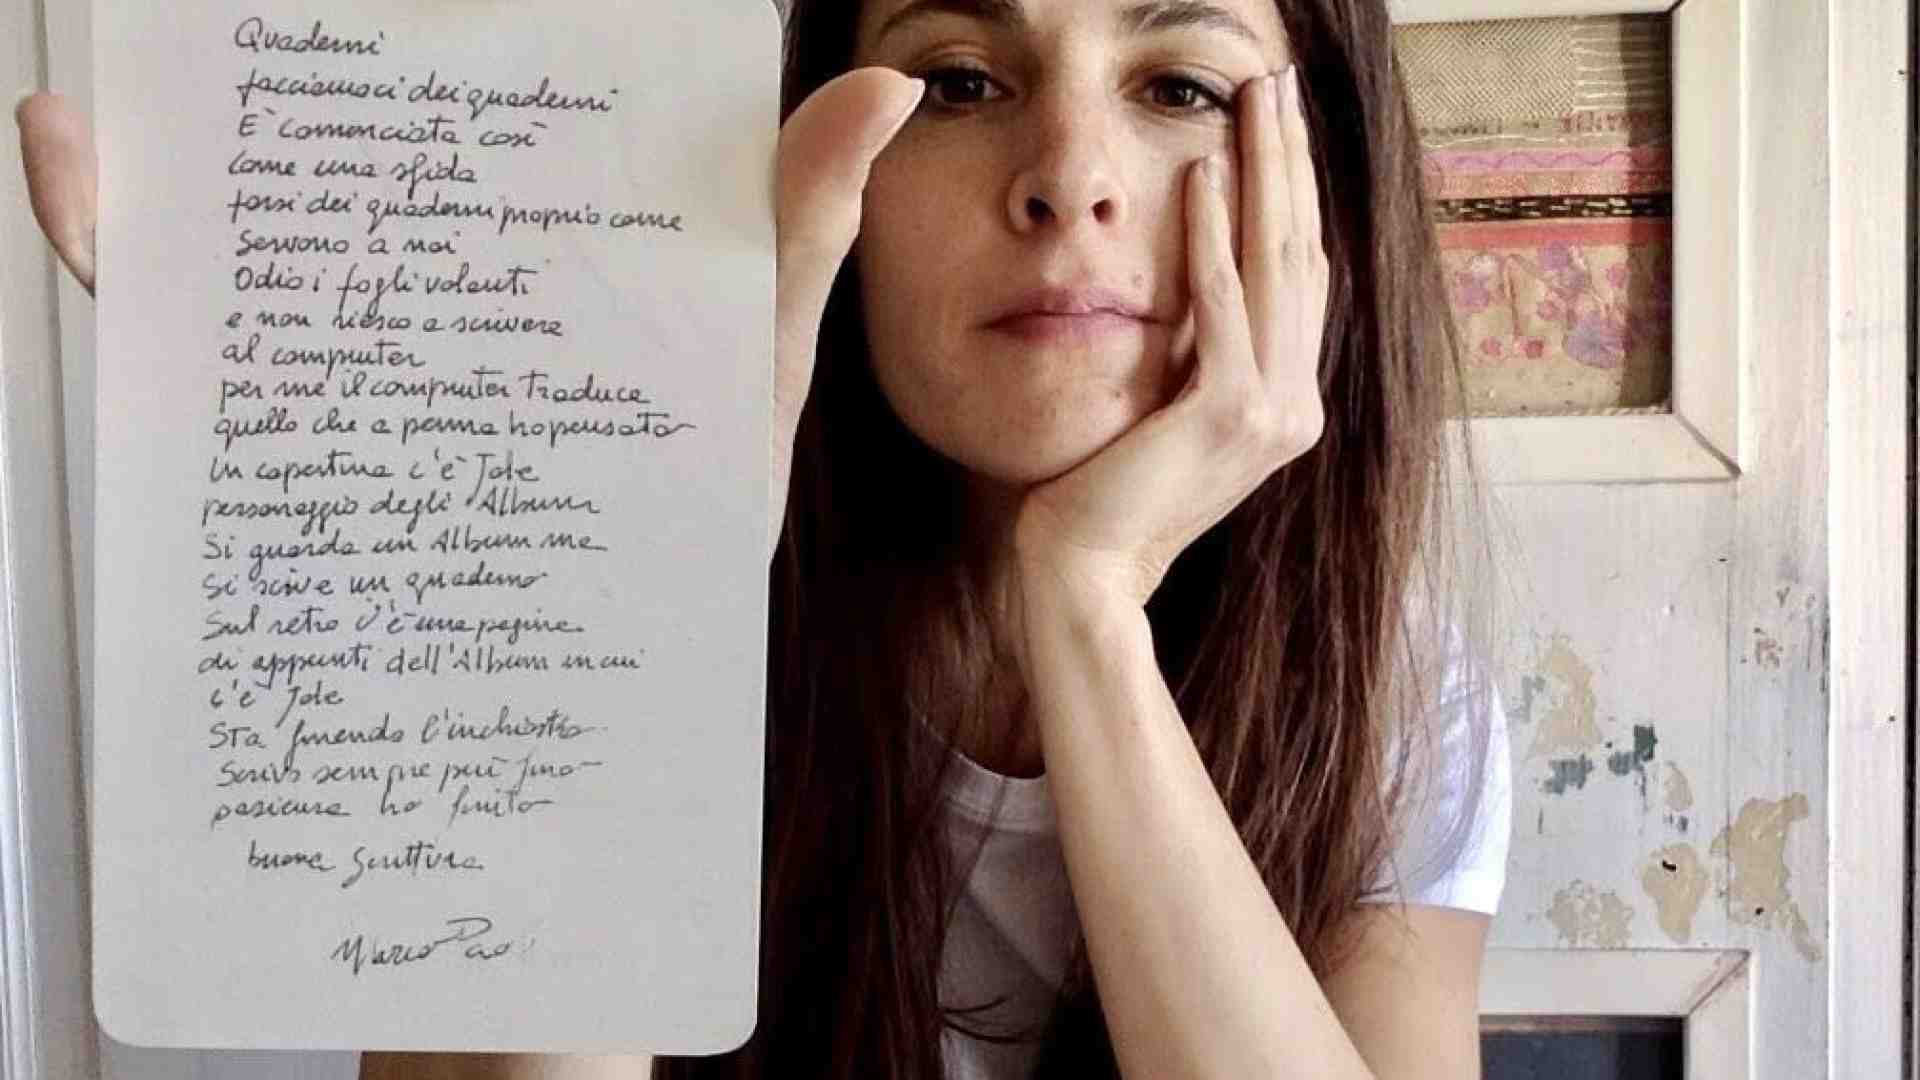 Quaderni
facciamoci dei quaderni
È cominciata così
come una sfida
farsi dei quaderni proprio come
servono a noi
Odio i fogli volanti
e non riesco a scrivere
al computer
per me il computer traduce
quello che a penna ho pensato
In copertina c'è Jole
personaggio degli Album
Si guarda un Album ma
si scive un quaderno
Sul retro c'è una pagina
di appunti dell'Album in cui
c'è Jole
Sta finendo l'inchiostro
Scrivo sempre più fino
pasicura ho finito
buona scrittura
Marco Pao